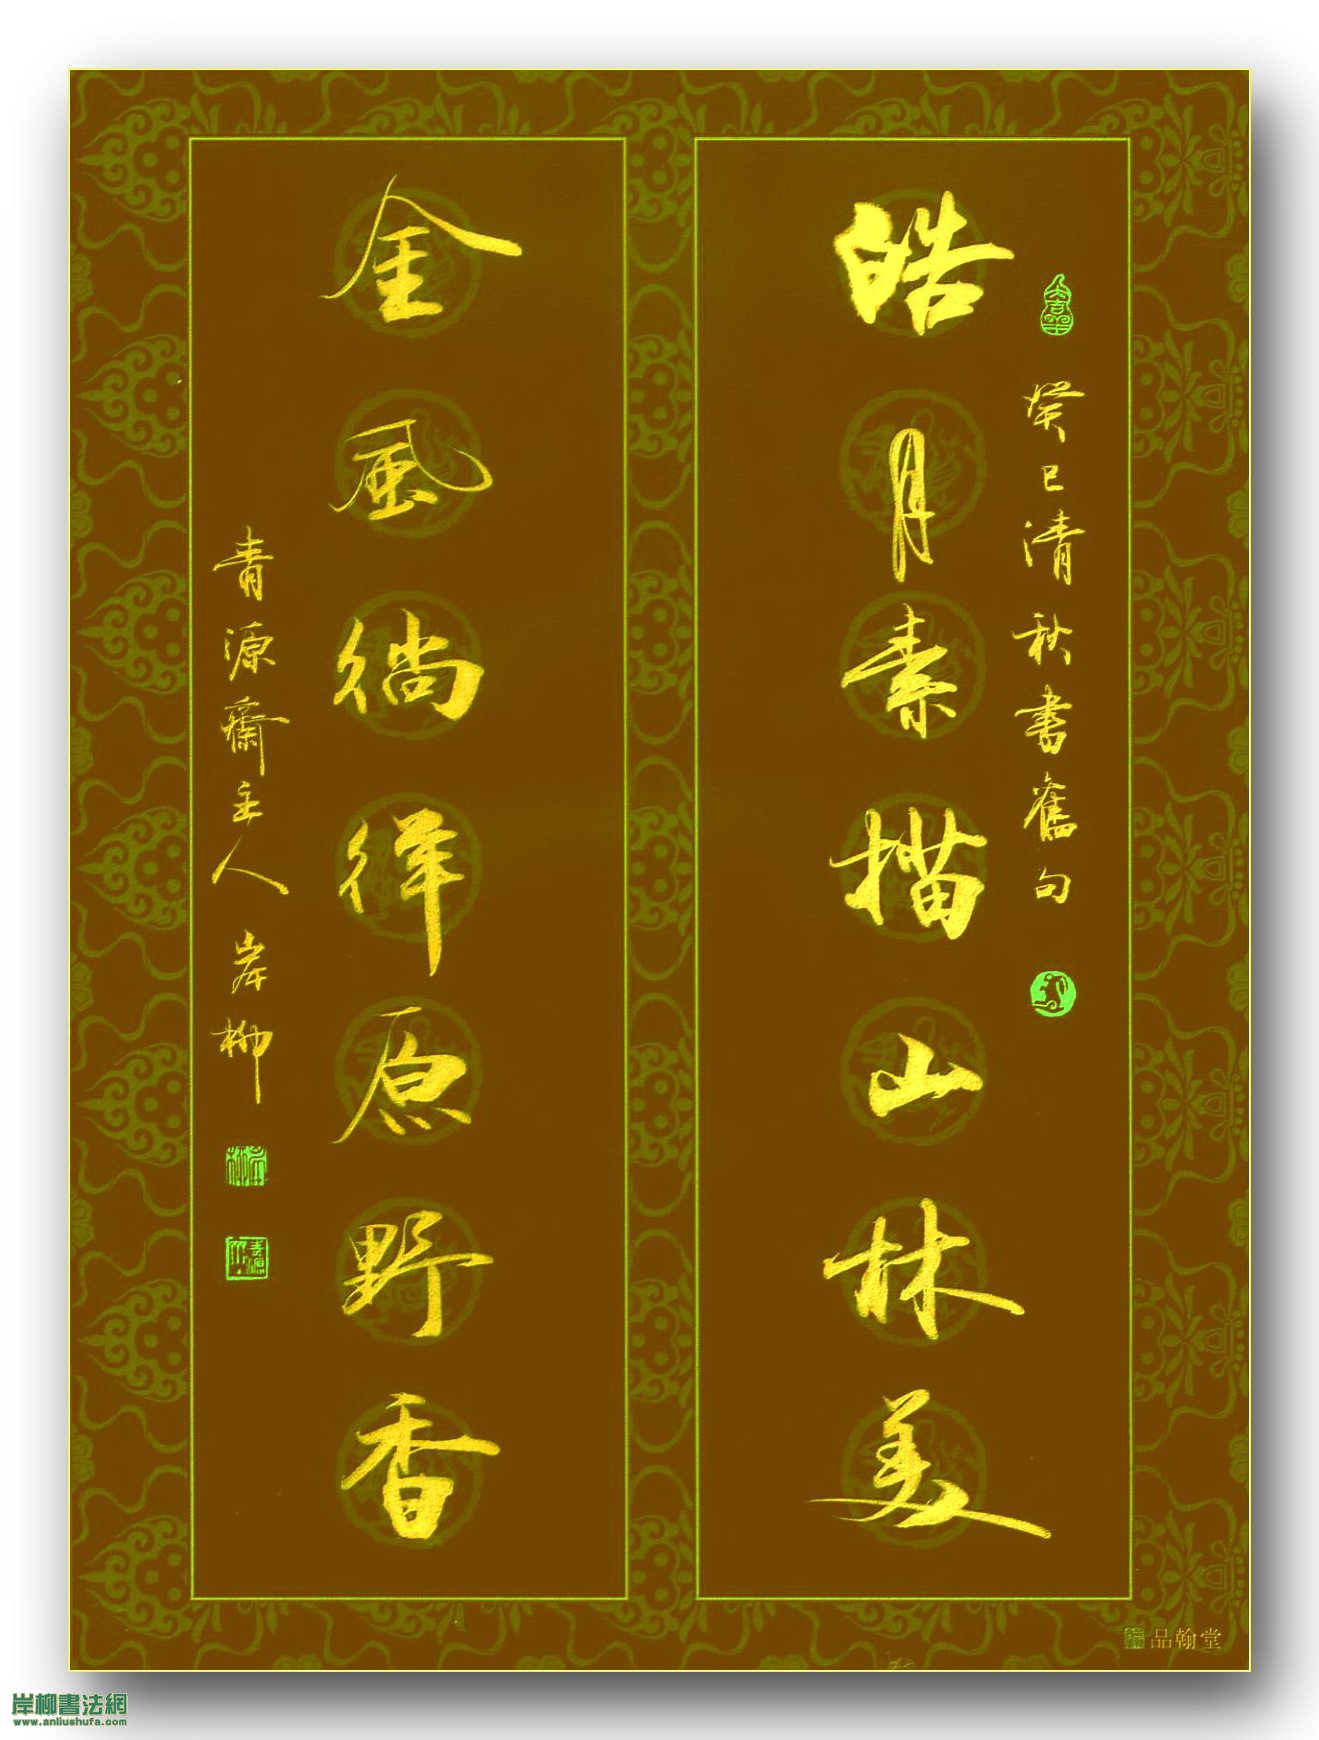 癸巳清秋書舊句
皓月素描山林美
金風徜徉原野香
青源齋主人岸柳
品翰堂
岸柳書法網
www.anliushufa.com